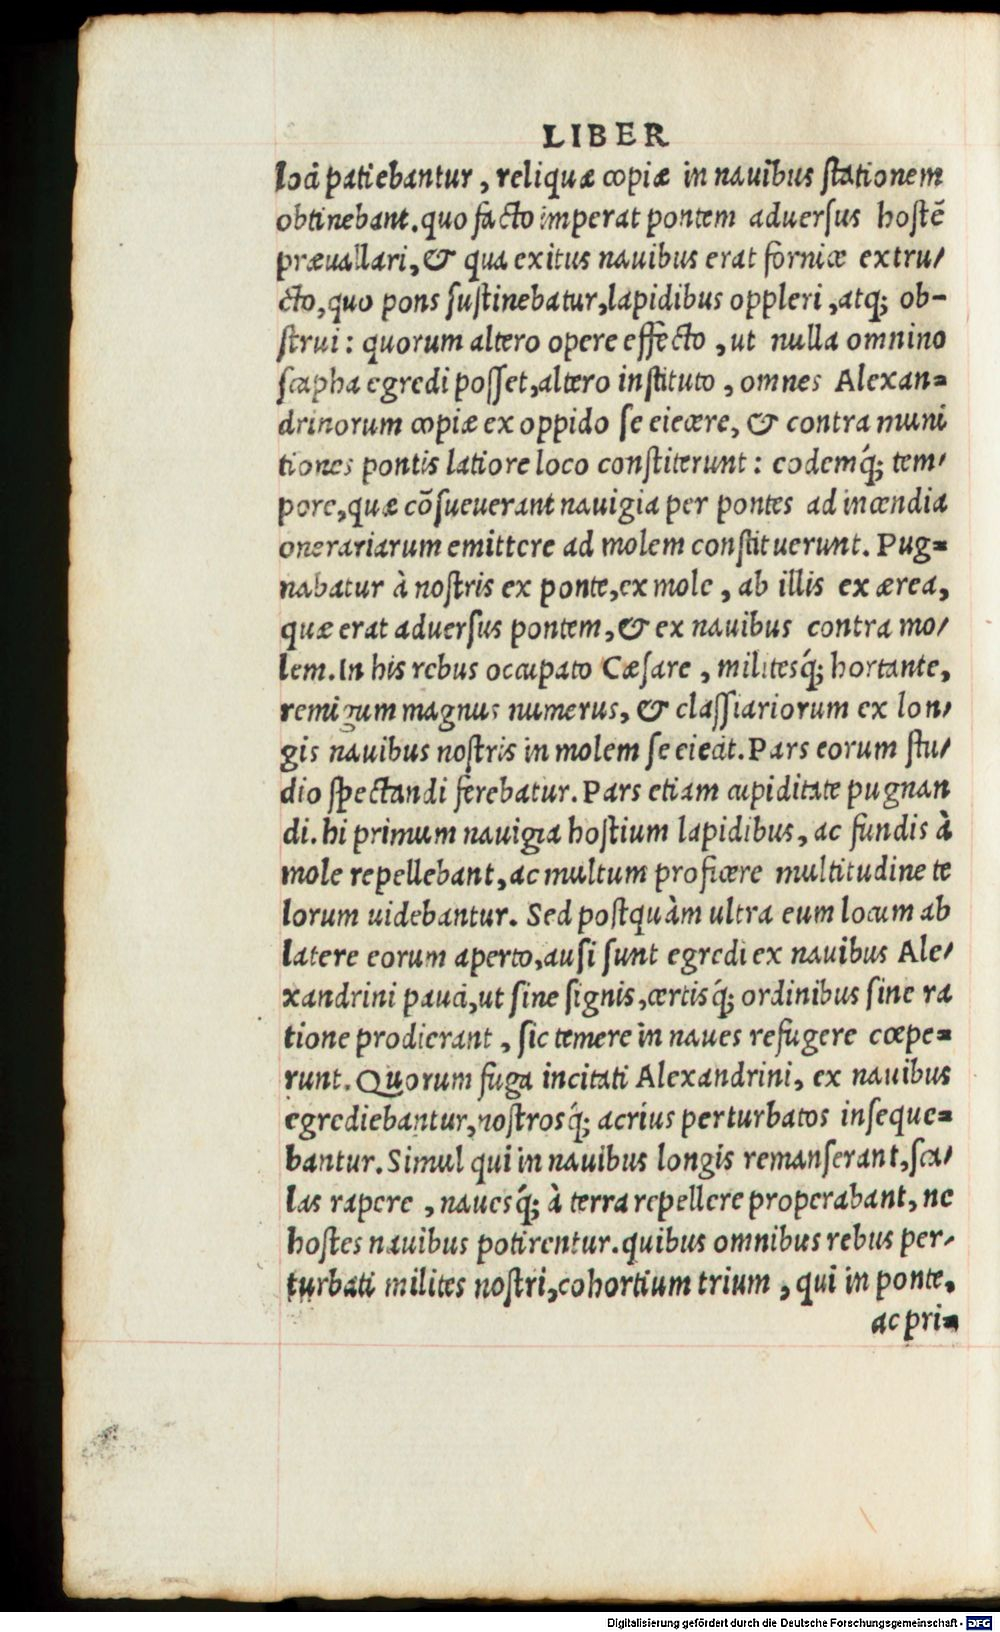 LIBER
loci patiebantur, reliquæ copiæ in nauibus ſtationem
obtinebant. quo facto imperat pontem aduerſus hoſtẽ
præuallari, & qua exitus nauibus erat fornice extru/
cto, quo pons ſuſtinebatur, lapidibus oppleri, atq; ob-
ſtrui: quorum altero opere effecto, ut nulla omnino
ſcapha egredi poſſet, altero inſtituto, omnes Alexan=
drinorum copiæ ex oppido ſe eiecere, & contra muni
tiones pontis latiore loco conſtiterunt: eodemq́; tem/
pore, quæ cõſueuerant nauigia per pontes ad incendia
onerariarum emittere ad molem conſtituerunt. Pug=
nabatur à noſtris ex ponte, ex mole, ab illis ex ærea,
quæ erat aduerſus pontem, & ex nauibus contra mo/
lem. In his rebus occupato Cæſare, militesq́; hortante,
remigum magnus numerus, & claſſiariorum ex lon/
gis nauibus noſtris in molem ſe eiecit. Pars eorum ſtu/
dio ſpectandi ferebatur. Pars etiam cupiditate pugnan
di. hi primum nauigia hoſtium lapidibus, ac fundis à
mole repellebant, ac multum proficere multitudine te
lorum uidebantur. Sed poſtquàm ultra eum locum ab
latere eorum aperto, auſi ſunt egredi ex nauibus Ale/
xandrini pauci, ut ſine ſignis, certisq́; ordinibus ſine ra
tione prodierant, ſic temere in naues refugere cœpe=
runt. Quorum fuga incitati Alexandrini, ex nauibus
egrediebantur, noſtrosq́; acrius perturbatos inſeque=
bantur. Simul qui in nauibus longis remanſerant, ſca/
las rapere, nauesq́; à terra repellere properabant, ne
hoſtes nauibus potirentur. quibus omnibus rebus per/
turbati milites noſtri, cohortium trium, qui in ponte,
ac pri=
Digitalisierung gefördert durch die Deutsche Forschungsgemeinschaft - DFG